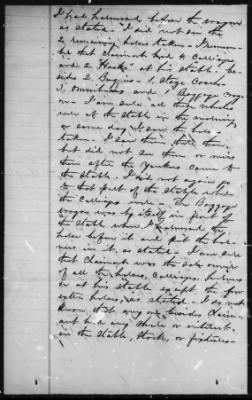 I had harnessed before the wagon
as stated. I did not see the
2 remaining horses taken. I remem-
ber that claimant had 4 Carriages
and 2 "Hacks" at his stable be-
sides 2 Buggies. 1 Stage Coach
1 Omnibuses and 1 Baggage wag-
on. I am sure all these vehicles
were at the stable in the morning
or same day I saw the horses
taken. I saw them there then,
but did not see them or miss
them after the Yankees came to
the stable. I did not again go
to that part of the stable where
the Carriages were. The Baggage
wagon was by itself in front of
the stall where I
horse before it and put the har-
ness on it, as stated. I am sure
that claimant was the sole owner
of all the horses, Carriages, harness
&c at his stable except the four
extra horses, as stated. I do not
know that any one besides Claim-
ant had any share or interest
in the stable, stock, or fixtures